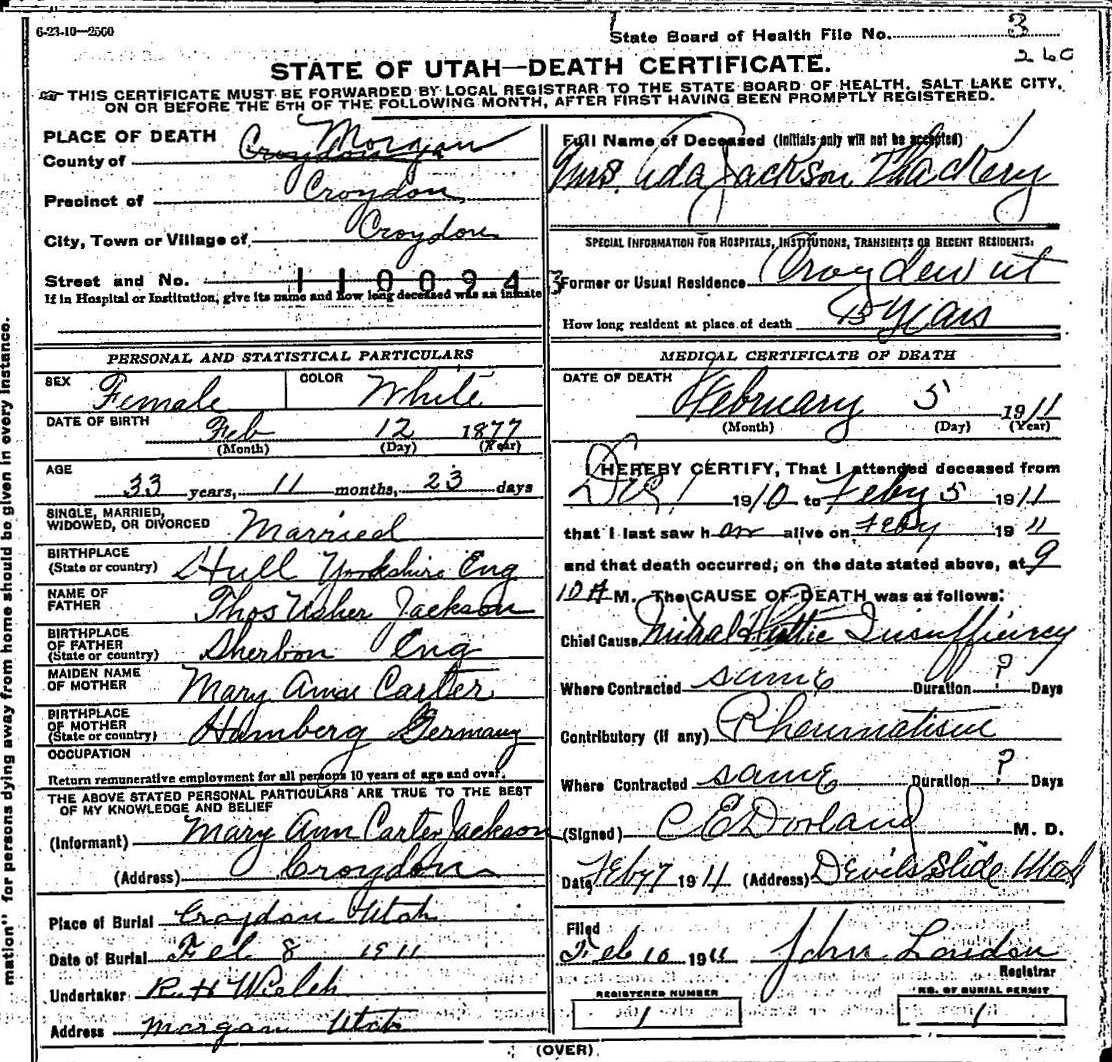 6-23-10—2500
State Board of Health File No. 3
260
STATE OF UTAH—DEATH CERTIFICATE.
THIS CERTIFICATE MUST BE FORWARDED BY LOCAL REGISTRAR TO THE STATE BOARD OF HEALTH, SALT LAKE CITY,
ON OR BEFORE THE 5TH OF THE FOLLOWING MONTH, AFTER FIRST HAVING BEEN PROMPTLY REGISTERED.
PLACE OF DEATH
County of Croydon Morgan
Precinct of Croydon
City, Town or Village of Croydon
Street and No. 110094
If in Hospital or Institution, give its name and how long deceased was an inmate
Full Name of Deceased (Initials only will not be accepted)
Mrs. Ada Jackson Thackery
SPECIAL INFORMATION FOR HOSPITALS, INSTITUTIONS, TRANSIENTS OR RECENT RESIDENTS.
3 Former or Usual Residence Croyden ut
How long resident at place of death 15 Years
PERSONAL AND STATISTICAL PARTICULARS
SEX Female COLOR White
DATE OF BIRTH Feb 12 1877
(Month) (Day) (Year)
AGE
33 years, 11 months, 23 days
SINGLE, MARRIED,
WIDOWED, OR DIVORCED Married
BIRTHPLACE
(State or country) Hull Yorkshire Eng
NAME OF
FATHER Thos Usher Jackson
BIRTHPLACE
OF FATHER
(State or country) Sherbon Eng
MAIDEN NAME
OF MOTHER Mary Ann Carter
BIRTHPLACE
OF MOTHER
(State or country) Hamberg Germany
OCCUPATION
Return remunerative employment for all persons 10 years of age and over.
THE ABOVE STATED PERSONAL PARTICULARS ARE TRUE TO THE BEST
OF MY KNOWLEDGE AND BELIEF
(Informant) Mary Ann Carter Jackson
(Address) Croydon
Place of Burial Croydon Utah
Date of Burial Feb 8 1911
Undertaker R H Welch
Address Morgan Utah
MEDICAL CERTIFICATE OF DEATH
DATE OF DEATH
February 5 1911
(Month) (Day) (Year)
I HEREBY CERTIFY, That I attended deceased from
1910 to Feby 5 1911
that I last saw h er alive on Feby 1911
and that death occurred, on the date stated above, at 9
10 A M. The CAUSE OF DEATH was as follows:
Chief Cause Mitral Insufficiency
Where Contracted same Duration ? Days
Contributory (if any) Rheumatism
Where Contracted same Duration ? Days
(Signed) C E Dorland M. D.
Date Feby 7 1911 (Address) Devils Slide Utah
Filed
Feb 10 1911 John London
Registrar
REGISTERED NUMBER
1
NO. OF BURIAL PERMIT
1
(OVER)
mation" for persons dying away from home should be given in every instance.